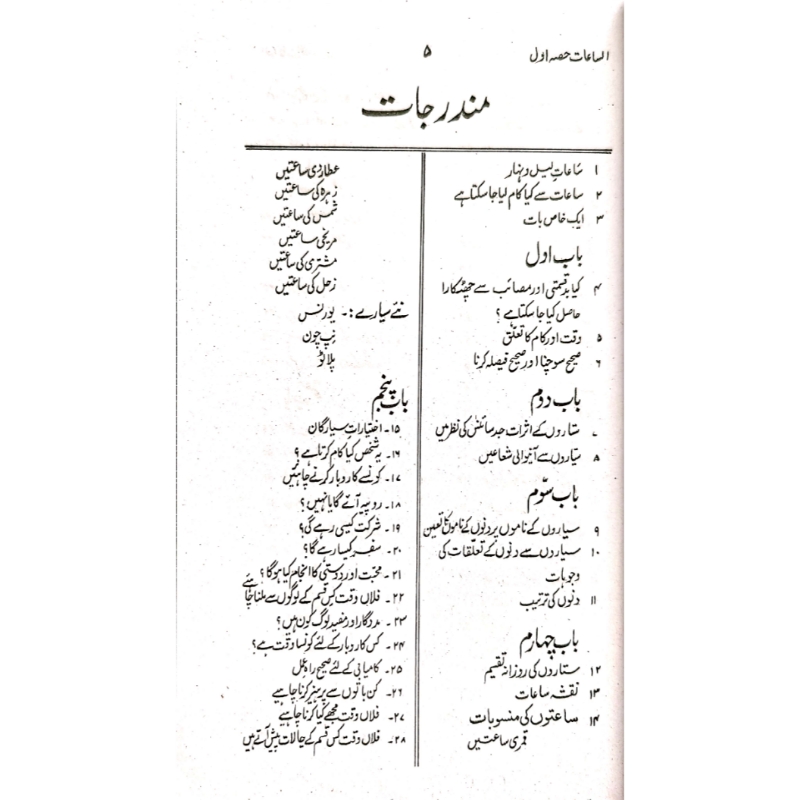 الساعات حصہ اول
۵
مندرجات
۱ ساعات لیل و نہار
۲ ساعات سے کیا کام لیا جا سکتا ہے
۳ ایک خاص بات
باب اول
۴ کیا بدقسمتی اور مصائب سے چھٹکارا
حاصل کیا جا سکتا ہے؟
۵ وقت اور کام کا تعلق
۶ صحیح سوچنا اور صحیح فیصلہ کرنا
باب دوم
۷ ستاروں کے اثرات جدید سائنس کی نظر میں
۸ سیاروں سے آنیوالی شعاعیں
باب سوّم
۹ سیاروں کے ناموں پر دنوں کے ناموں کا تعین
۱۰ سیاروں سے دنوں کے تعلقات کی
وجوہات
۱۱ دنوں کی ترتیب
باب چہارم
۱۲ ستاروں کی روزانہ تقسیم
۱۳ نقشہ ساعات
۱۴ ساعتوں کی منسوبات
قمری ساعتیں
عطاردی ساعتیں
زہرہ کی ساعتیں
شمس کی ساعتیں
مریخی ساعتیں
مشتری کی ساعتیں
زحل کی ساعتیں
نئے سیارے:۔ یورنس
نپ چون
پلاٹو
باب پنجم
۱۵۔ اختیارات سیارگان
۱۶۔ یہ شخص کیا کام کرتا ہے؟
۱۷۔ کونسے کاروبار کرنے چاہئیں
۱۸۔ روپیہ آئے گا یا نہیں؟
۱۹۔ شرکت کیسی رہے گی؟
۲۰۔ سفر کیسا رہے گا؟
۲۱۔ محبت اور دوستی کا انجام کیا ہوگا؟
۲۲۔ فلاں وقت کس قسم کے لوگوں سے ملنا چاہئے
۲۳۔ مددگار اور مفید لوگ کون ہیں؟
۲۴۔ کس کاروبار کے لئے کونسا وقت ہے؟
۲۵۔ کامیابی کے لئے صحیح راہ عمل
۲۶۔ کن باتوں سے پرہیز کرنا چاہیے
۲۷۔ فلاں وقت مجھے کیا کرنا چاہیے
۲۸۔ فلاں وقت کس قسم کے حالات پیش آتے ہیں